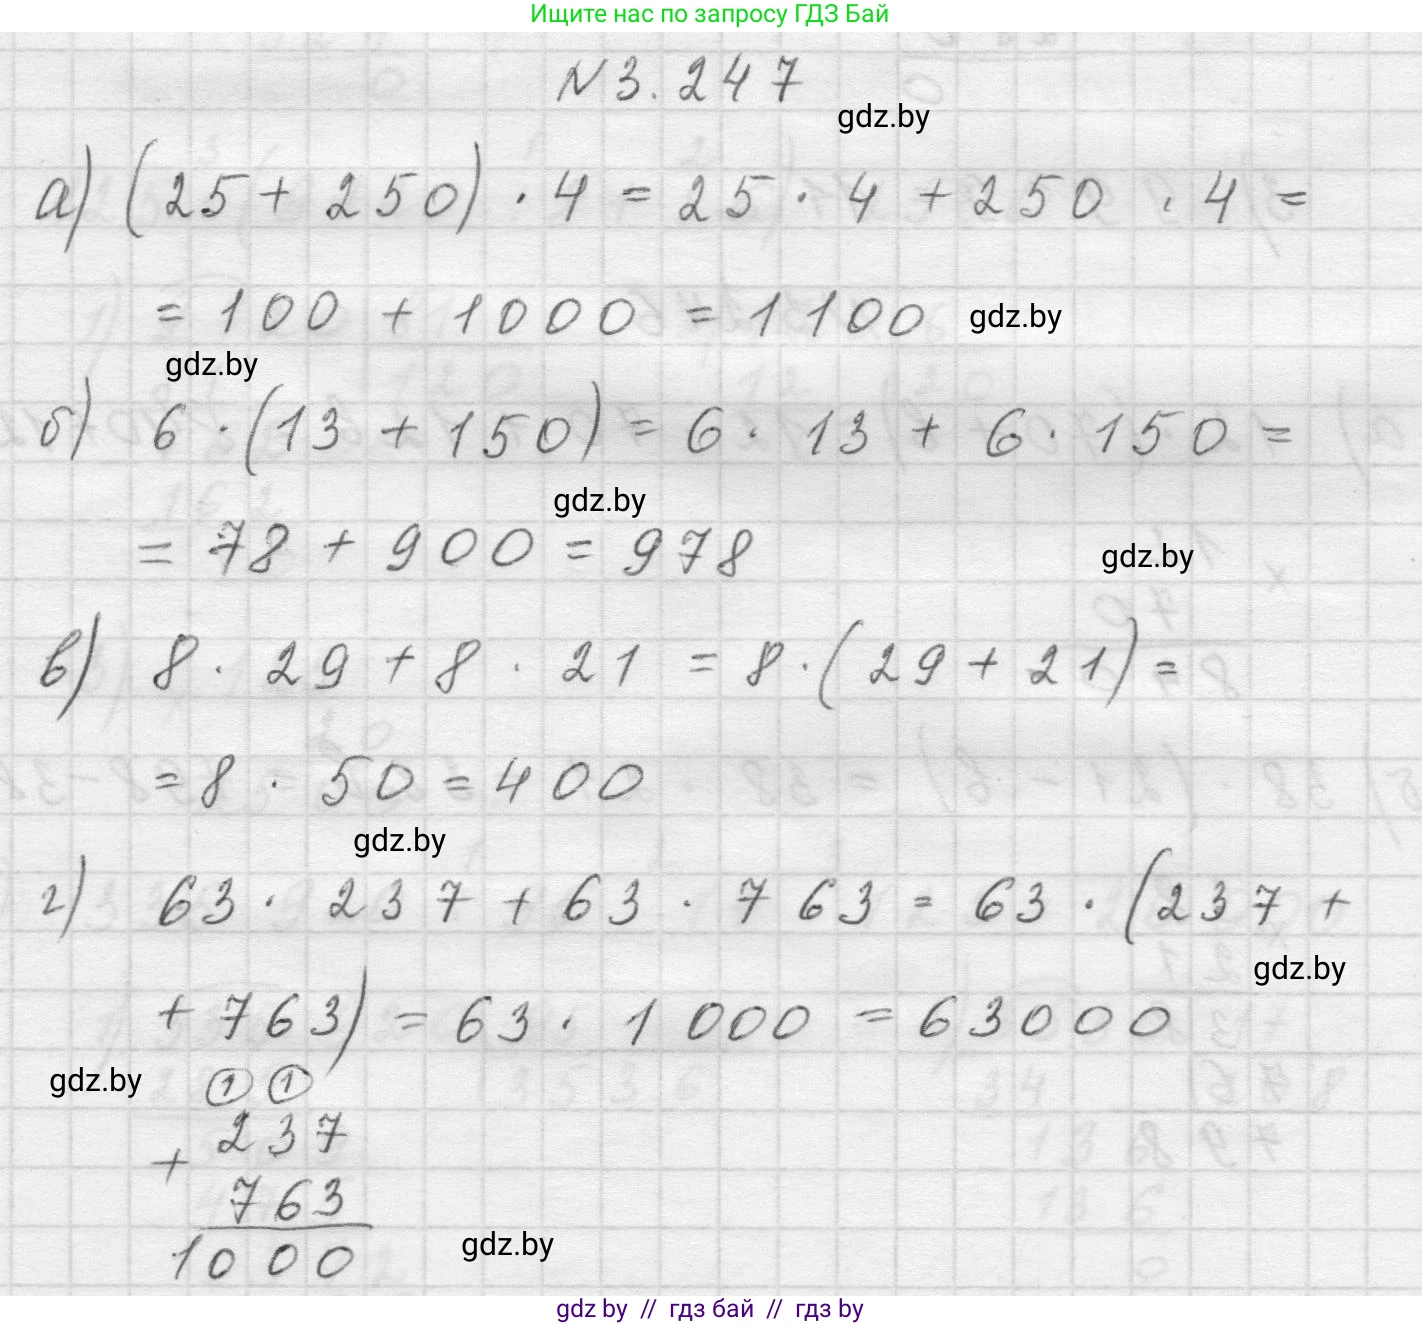 Ищите нас по запросу ГДЗ Бай
N 3.247
gdz.by
а) (25 + 250) · 4 = 25 · 4 + 250 · 4 =
= 100 + 1000 = 1100
gdz.by
gdz.by
б) 6 · (13 + 150) = 6 · 13 + 6 · 150 =
gdz.by
= 78 + 900 = 978
gdz.by
в) 8 · 29 + 8 · 21 = 8 · (29 + 21) =
= 8 · 50 = 400
gdz.by
г) 63 · 237 + 63 · 763 = 63 · (237 +
gdz.by
+ 763) = 63 · 1000 = 63000
gdz.by
1 1
237
+
763
1000
gdz.by
gdz by // гдз бай // гдз by